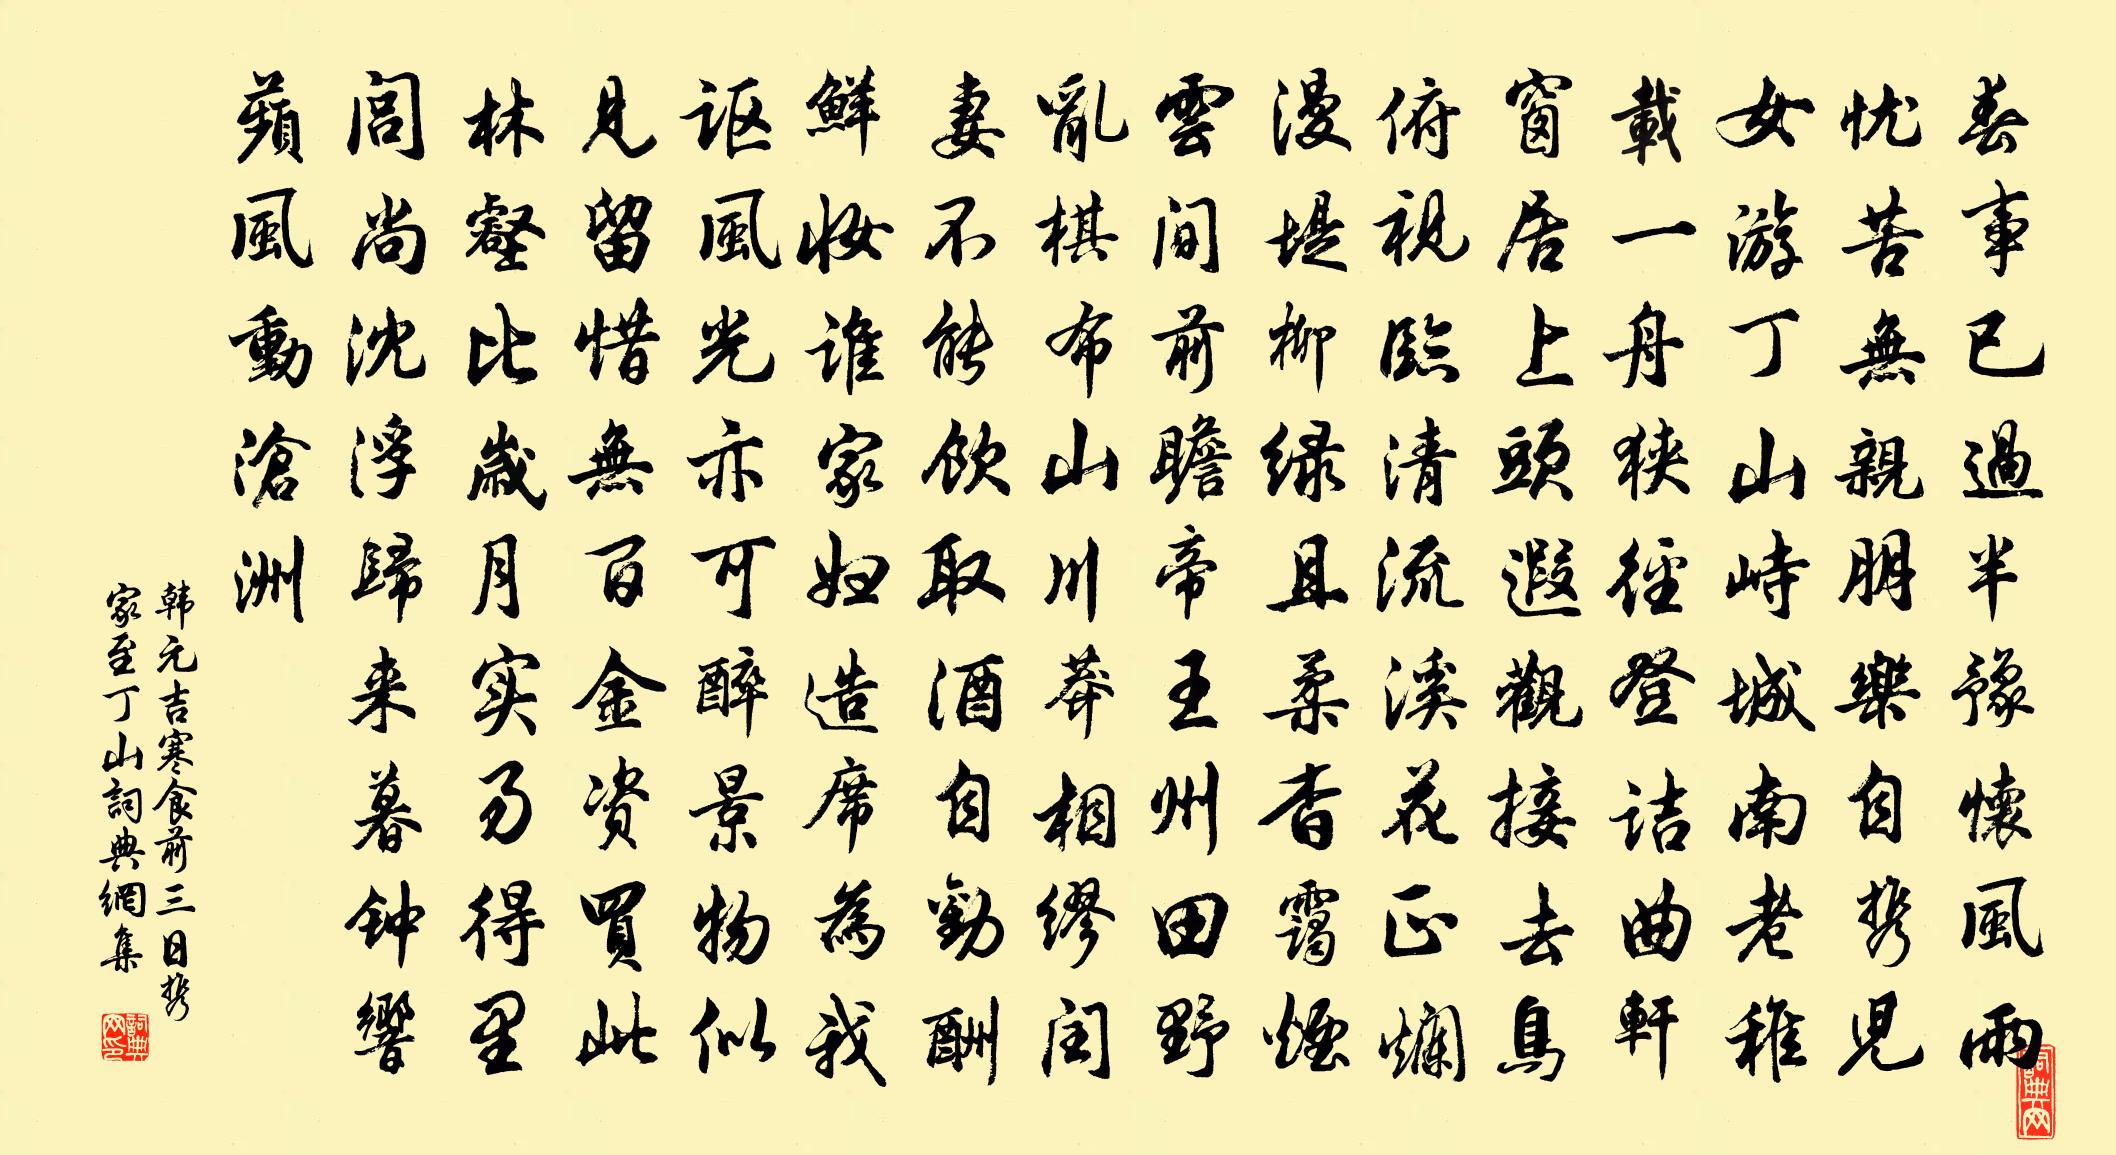 春事已過半豫懷風雨
忧苦無親朋樂自携兒
女游丁山峙城南老稚
載一舟狭徑登诘曲軒
窗居上頭遐觀接去鳥
俯視臨清流溪花正爛
漫堤柳绿且柔杳靄煙
雲间前瞻帝王州田野
亂棋布山川莽相缪闺
妻不能飲取酒自勸酬
鮮妝谁家妇造席為我
讴風光亦可醉景物似
見留惜無百金资買此
林壑比歲月实易得里
闾尚沈浮歸来暮钟響
蘋風動滄洲
韩元吉寒食前三日携
家至丁山詞典網集
詞典网印
詞典网